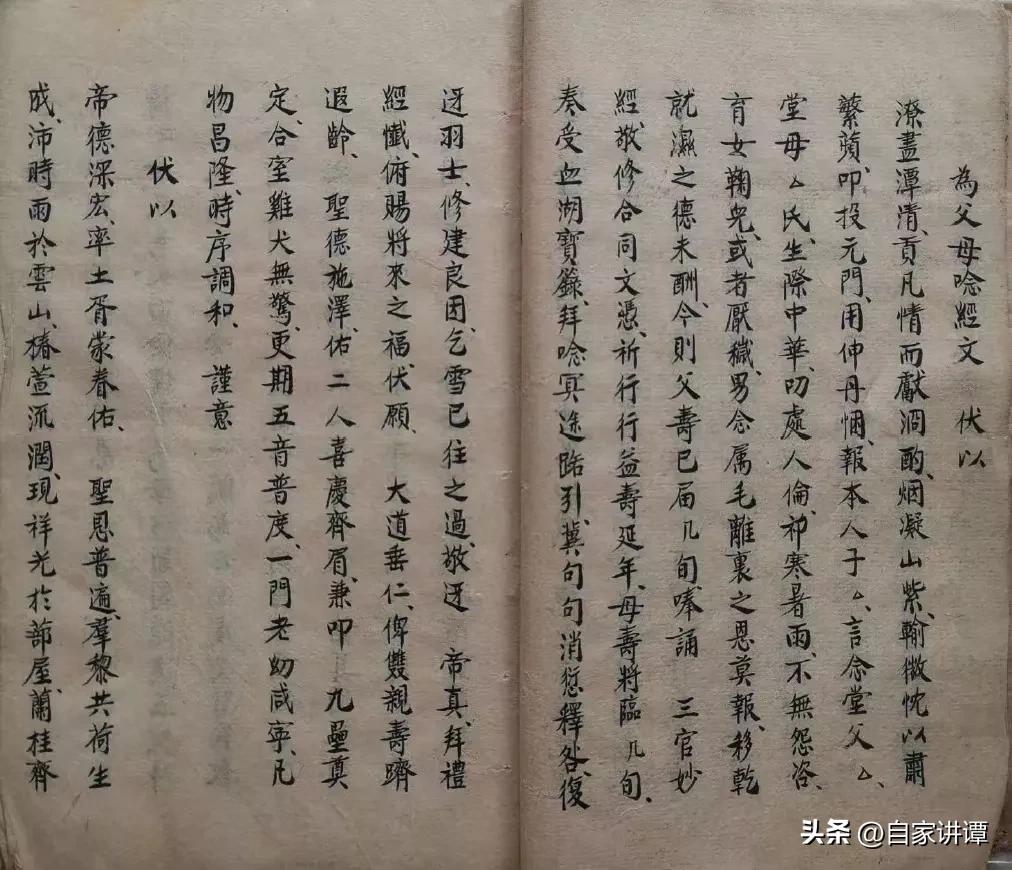 為父母唸經文　伏以
潦盡潭清、貢凡情而獻泂酌、烟凝山紫、輸微忱以肅
繁蘋、叩投元門、用伸丹悃、報本人子△、言念堂父△、
堂母△氏、生際中華、叨處人倫、祁寒暑雨、不無怨咨、
育女鞠兒、或者厭穢、男念属毛離裏之恩莫報、移乾
就濕之德未酬、今則父壽已届几旬、唪誦　三官妙
經、敬修合同文憑、祈行行益壽延年、母壽將臨几旬、
奏受血湖寶籙、拜唸冥途路引、冀句句消愆釋咎、復
迓羽士、修建良因、乞雪已往之過、敬迓　帝真、拜禮
經懺、俯賜將來之福、伏願　大道垂仁、俾雙親壽躋
遐齡、　聖德施澤、佑二人喜慶齊眉、兼叩　九壘奠
定、合室雞犬無驚、更期五音普度、一門老幼咸寧、凡
物昌隆、時序調和、　謹意
伏以
帝德深宏、率土胥蒙眷佑、　聖恩普遍、羣黎共荷生
成、沛時雨於雲山、椿萱流潤、現祥光於蔀屋、蘭桂齊
头条 @自家讲谭